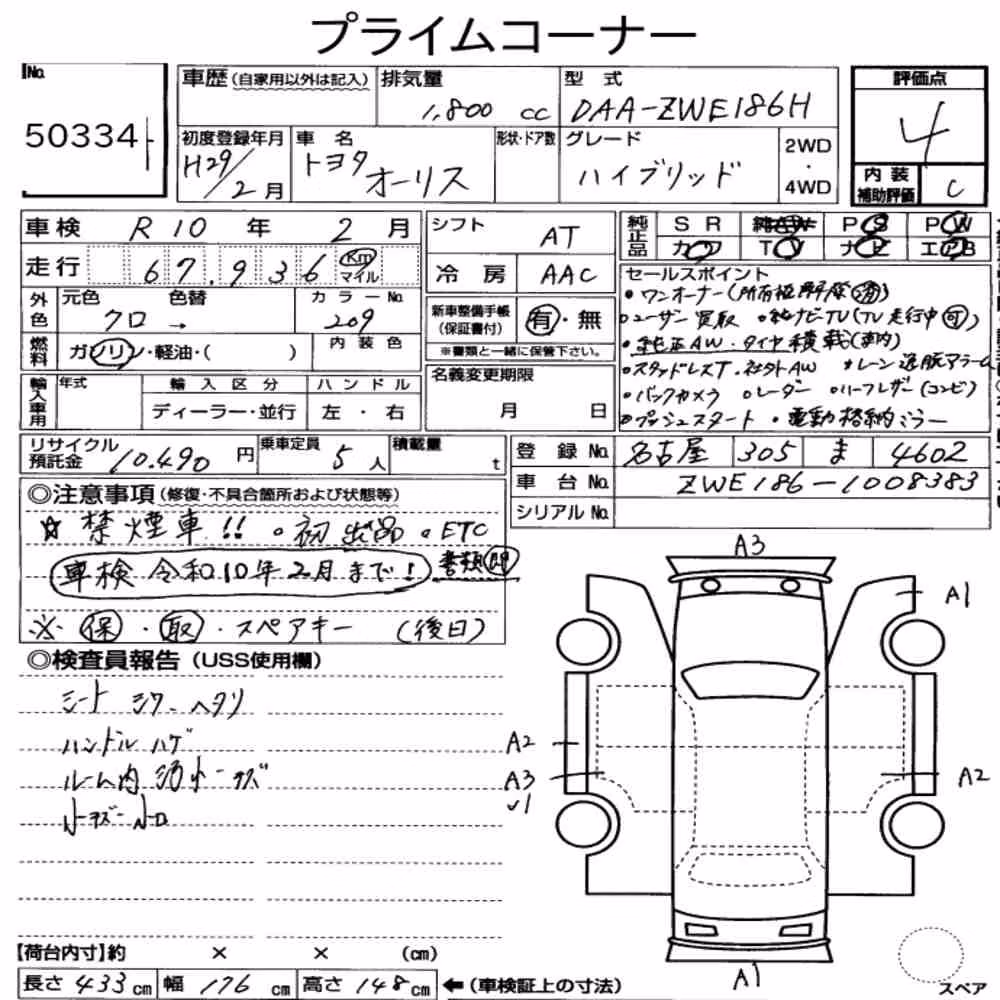 プライムコーナー
No.
50334
車歴(自家用以外は記入)
排気量
1,800 cc
型式
DAA-ZWE186H
評価点
4
初度登録年月
H29/2月
車名
トヨタ オーリス
形状・ドア数
グレード
ハイブリッド
2WD
・
4WD
内装
補助評価
C
車検 R10年 2月
走行 67,936 Km マイル
シフト AT
冷房 AAC
純正品
SR 純正AW PS PW
カワ TV ナビ エアB
外色
元色 色替
クロ →
カラーNo.
209
燃料
ガソリン・軽油・( )
内装色
新車整備手帳
(保証書付)
有・無
※書類と一緒に保管下さい。
セールスポイント
・ワンオーナー(所有権解除済)
・ユーザー買取 ・純ナビTV(TV走行中可)
・純正AW・タイヤ積載(車内)
・スタッドレスT.社外AW ・レーン逸脱アラーム
・バックカメラ ・レーダー ・ハーフレザー(コンビ)
・プッシュスタート ・電動格納ミラー
輸入車用
年式
輸入区分
ディーラー・並行
ハンドル
左・右
名義変更期限
月 日
リサイクル
預託金
10,490円
乗車定員
5人
積載量
t
登録No. 名古屋 305 ま 4602
車台No. ZWE186-1008383
シリアルNo.
◎注意事項(修復・不具合箇所および状態等)
☆禁煙車!! ・初出品 ・ETC
車検 令和10年2月まで! 書類即
※ 保・取・スペアキー (後日)
◎検査員報告(USS使用欄)
シート シワ ヘタリ
ハンドル ハゲ
ルーム内 汚小 キズ
小キズ 小凹
A3
A1
A2
A3
A2
A1
【荷台内寸】約 × × (cm)
長さ 433cm 幅 176cm 高さ 148cm ←(車検証上の寸法)
スペア